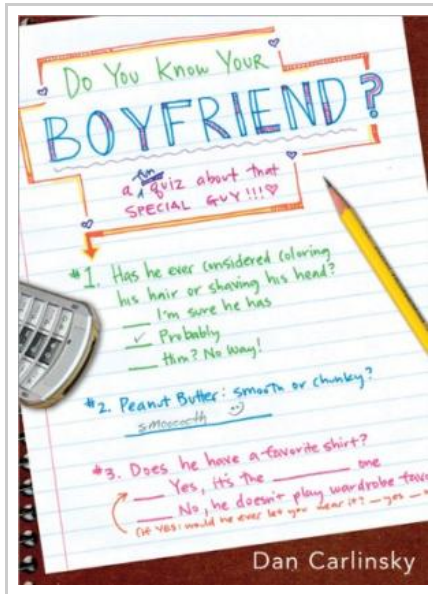 DO YOU KNOW YOUR
BOYFRIEND?
a fun quiz about that
SPECIAL GUY!!!
#1. Has he ever considered coloring
his hair or shaving his head?
___ I'm sure he has
✓ Probably
___ Him? No way!
#2. Peanut Butter: smooth or chunky?
smooooth
#3. Does he have a favorite shirt?
___ Yes, it's the ________ one
___ No, he doesn't play wardrobe
(if YES: would he ever let you wear it? __ yes __
Dan Carlinsky